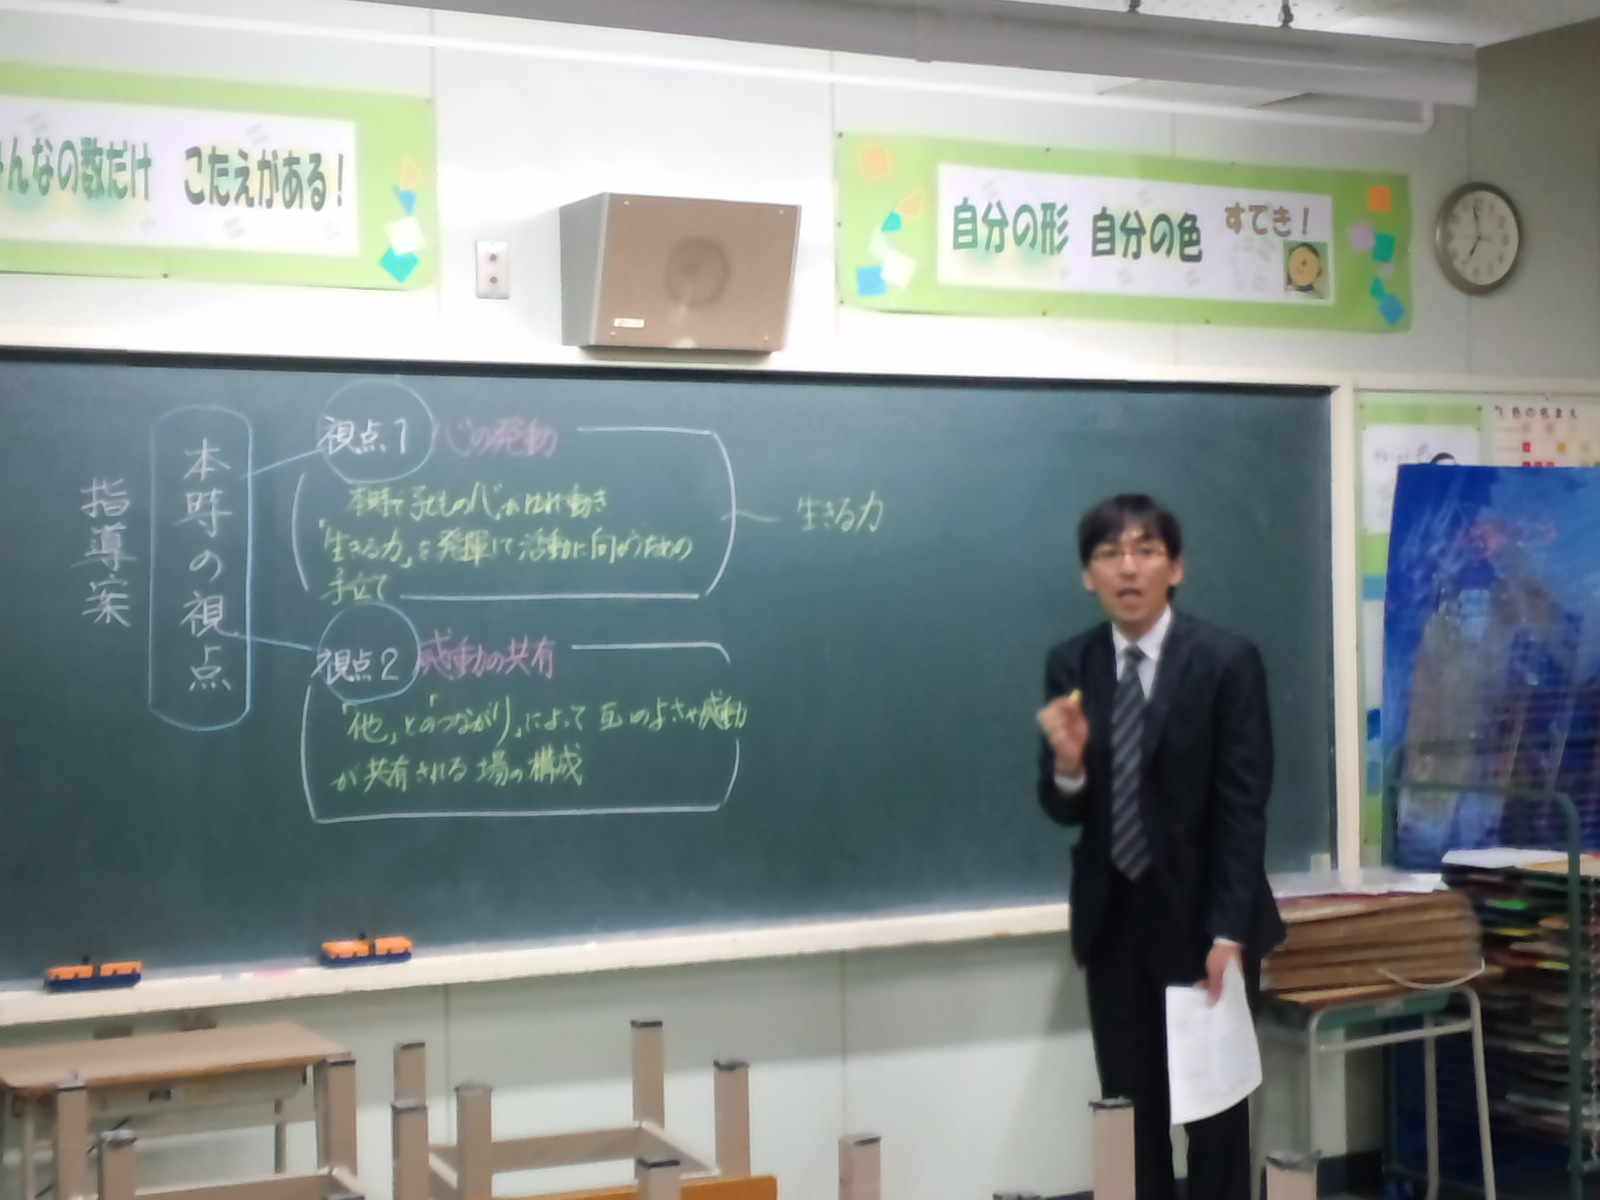 んなの数だけ こたえがある!
自分の形 自分の色 すてき!
色の名まえ
指導案
本時の視点
視点1 心の発動
本時で子どもの心がゆれ動き
「生きる力」を発揮して活動に向かうための
手立て
生きる力
視点2 感動の共有
「他」との「つながり」によって互いのよさや感動
が共有される場の構成